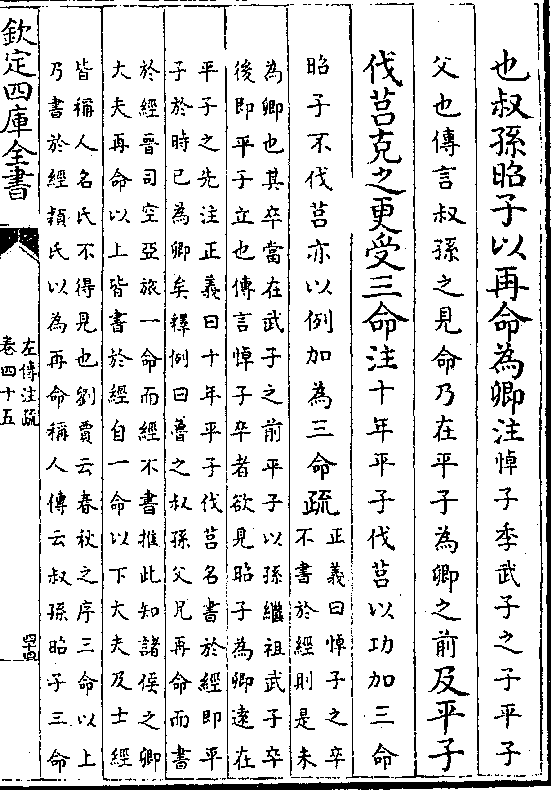 也叔孫昭子以再命為卿注悼子季武子之子平子
父也傳言叔孫之見命乃在平子為卿之前及平子
伐莒克之更受三命注十年平子伐莒以功加三命
昭子不伐莒亦以例加為三命疏正義曰悼子之卒
不書於經則是未
為卿也其卒當在武子之前平子以孫繼祖武子卒
後即平子立也傳言悼子卒者欲見昭子為卿逺在
平子之先注正義曰十年平子伐莒名書於經即平
子於時已為卿矣釋例曰魯之叔孫父兄再命而書
於經晉司空亞旅一命而經不書推此知諸侯之卿
大夫再命以上皆書於經自一命以下大夫及士經
皆稱人名氏不得見也劉賈云春秋之序三命以上
乃書於經頴氏以為再命稱人傳云叔孫昭子三命
欽定四庫全書
左傳注疏
卷四十五
四十四